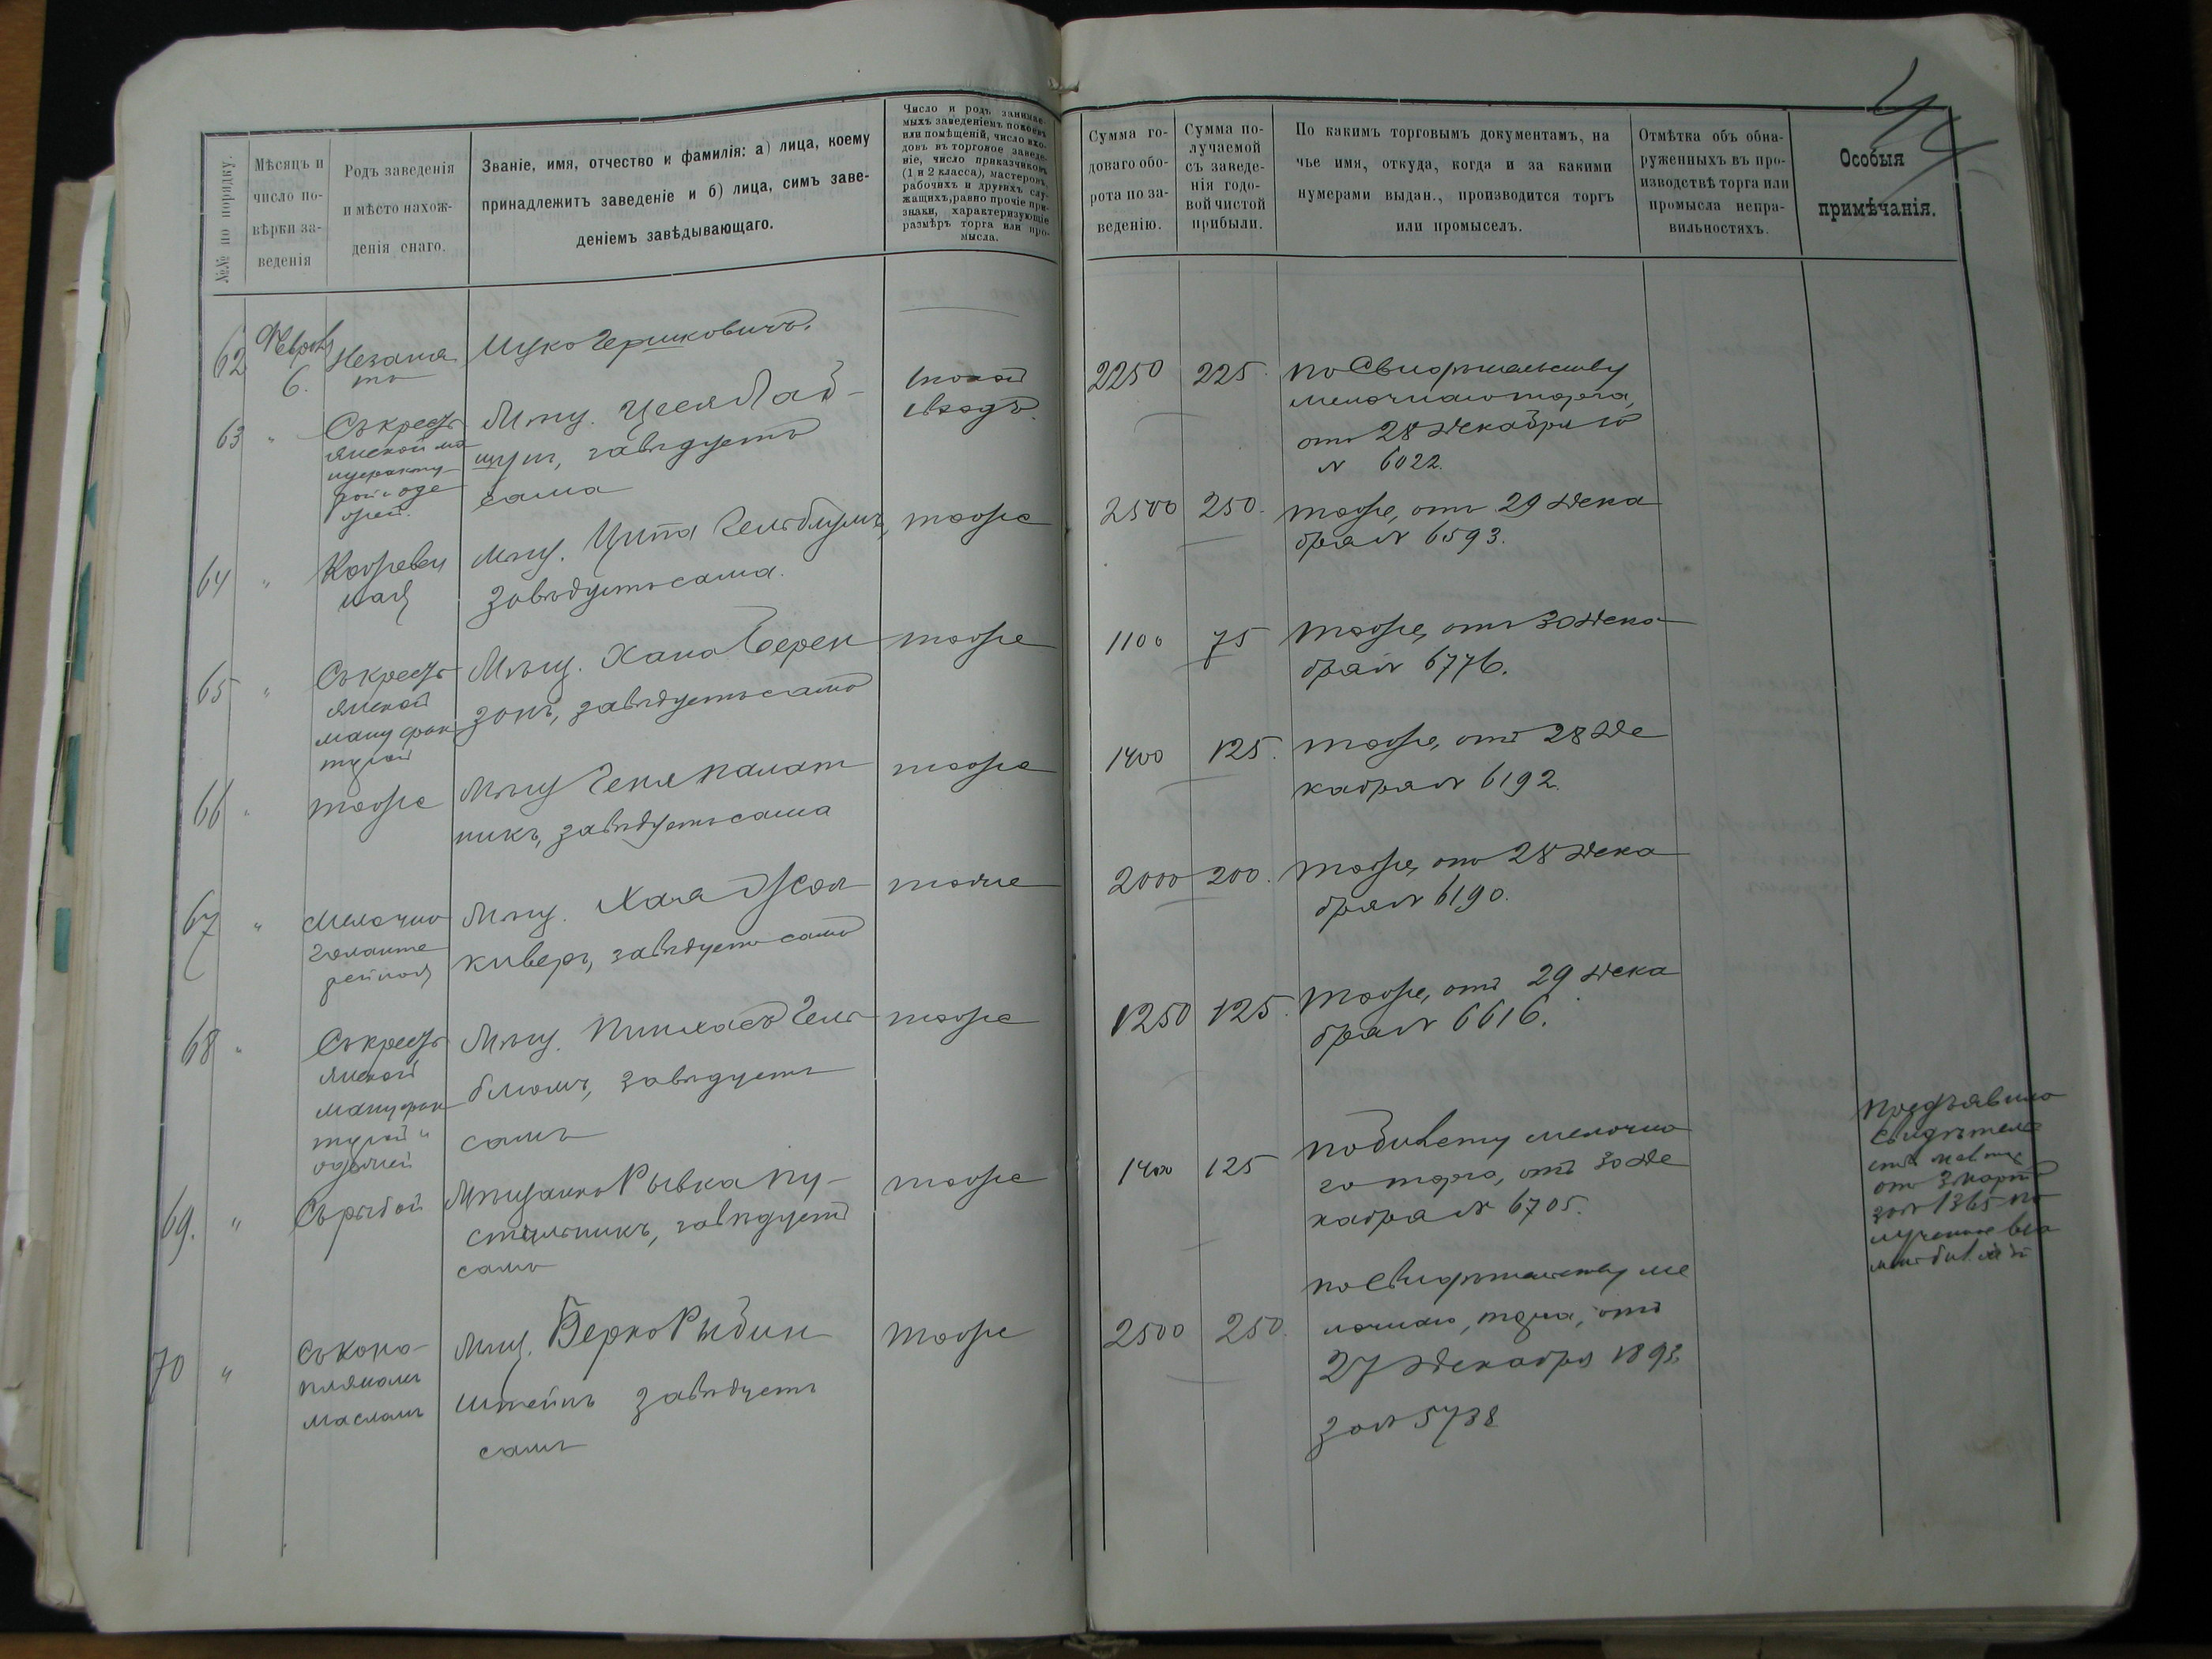 №№ по порядку.
Мѣсяцъ и
число по-
вѣрки за-
веденія
Родъ заведенія
и мѣсто нахож-
денія онаго.
Званіе, имя, отчество и фамилія: а) лица, коему
принадлежитъ заведеніе и б) лица, симъ заве-
деніемъ завѣдывающаго.
Число и родъ занимае-
мыхъ заведеніемъ покоевъ
или помѣщеній, число вхо-
довъ въ торговое заведе-
ніе, число приказчиковъ
(1 и 2 класса), мастеровъ,
рабочихъ и другихъ слу-
жащихъ, равно прочіе при-
знаки, характеризующіе
размѣръ торга или про-
мысла.
Сумма го-
доваго обо-
рота по за-
веденію.
Сумма по-
лучаемой
съ заведе-
нія годо-
вой чистой
прибыли.
По какимъ торговымъ документамъ, на
чье имя, откуда, когда и за какими
нумерами выдан., производится торгъ
или промыселъ.
Отмѣтка объ обна-
руженныхъ въ про-
изводствѣ торга или
промысла непра-
вильностяхъ.
Особыя
примѣчанія.
62
6.
Незаня
то
Ицко Гершковичъ.
63 "
Съ крест
янской ма
нуфакту
рой и оде
жей.
Мѣщ. Цеся Лай-
щукъ, завѣдуетъ
сама
1 покой
1 входъ.
2250 225.
по Свидѣтельству
мелочнаго торга,
отъ 28 Декабря за
№ 6022.
64 "
Кожевен
ная
Мѣщ. Ципа Гельблумъ,
завѣдуетъ сама.
тоже
2500 250.
тоже, отъ 29 Дека
бря № 6593.
65 "
Съ крест
янской
мануфак
турой
Мѣщ. Хана Берен
зонъ, завѣдуетъ сама
тоже
1100 75
тоже, отъ 30 Дека
бря № 6776.
66 "
тоже
Мѣщ Геня Палат
никъ, завѣдуетъ сама
тоже
1400 125.
тоже, отъ 28 Де
кабря № 6192.
67 "
Мелочно
галанте
рейная
Мѣщ. Хая
киверъ, завѣдуетъ сама
тоже
2000 200.
тоже, отъ 28 Дека
бря № 6190.
68 "
Съ крест
янской
мануфак
турой и
одежей
Мѣщ. Пинхасъ Гель
блюмъ, завѣдуетъ
самъ
тоже
1250 125.
тоже, отъ 29 Дека
бря № 6616.
69. "
Съ рыбой
Мѣщанка Рывка Пу-
стыльникъ, завѣдуетъ
сама
тоже
1400 125
по билету мелочна
го торга, отъ 30 Де
кабря № 6705.
Предъявила
свидѣтель
ство
отъ 3 марта
за № 1365 по
лученное
70 "
Съ коно-
плянымъ
масломъ
Мѣщ. Берко Рубин
штейнъ завѣдуетъ
самъ
тоже
2500 250.
по Свидѣтельству ме
лочнаго торга, отъ
27 Декабря 1893
за № 5738